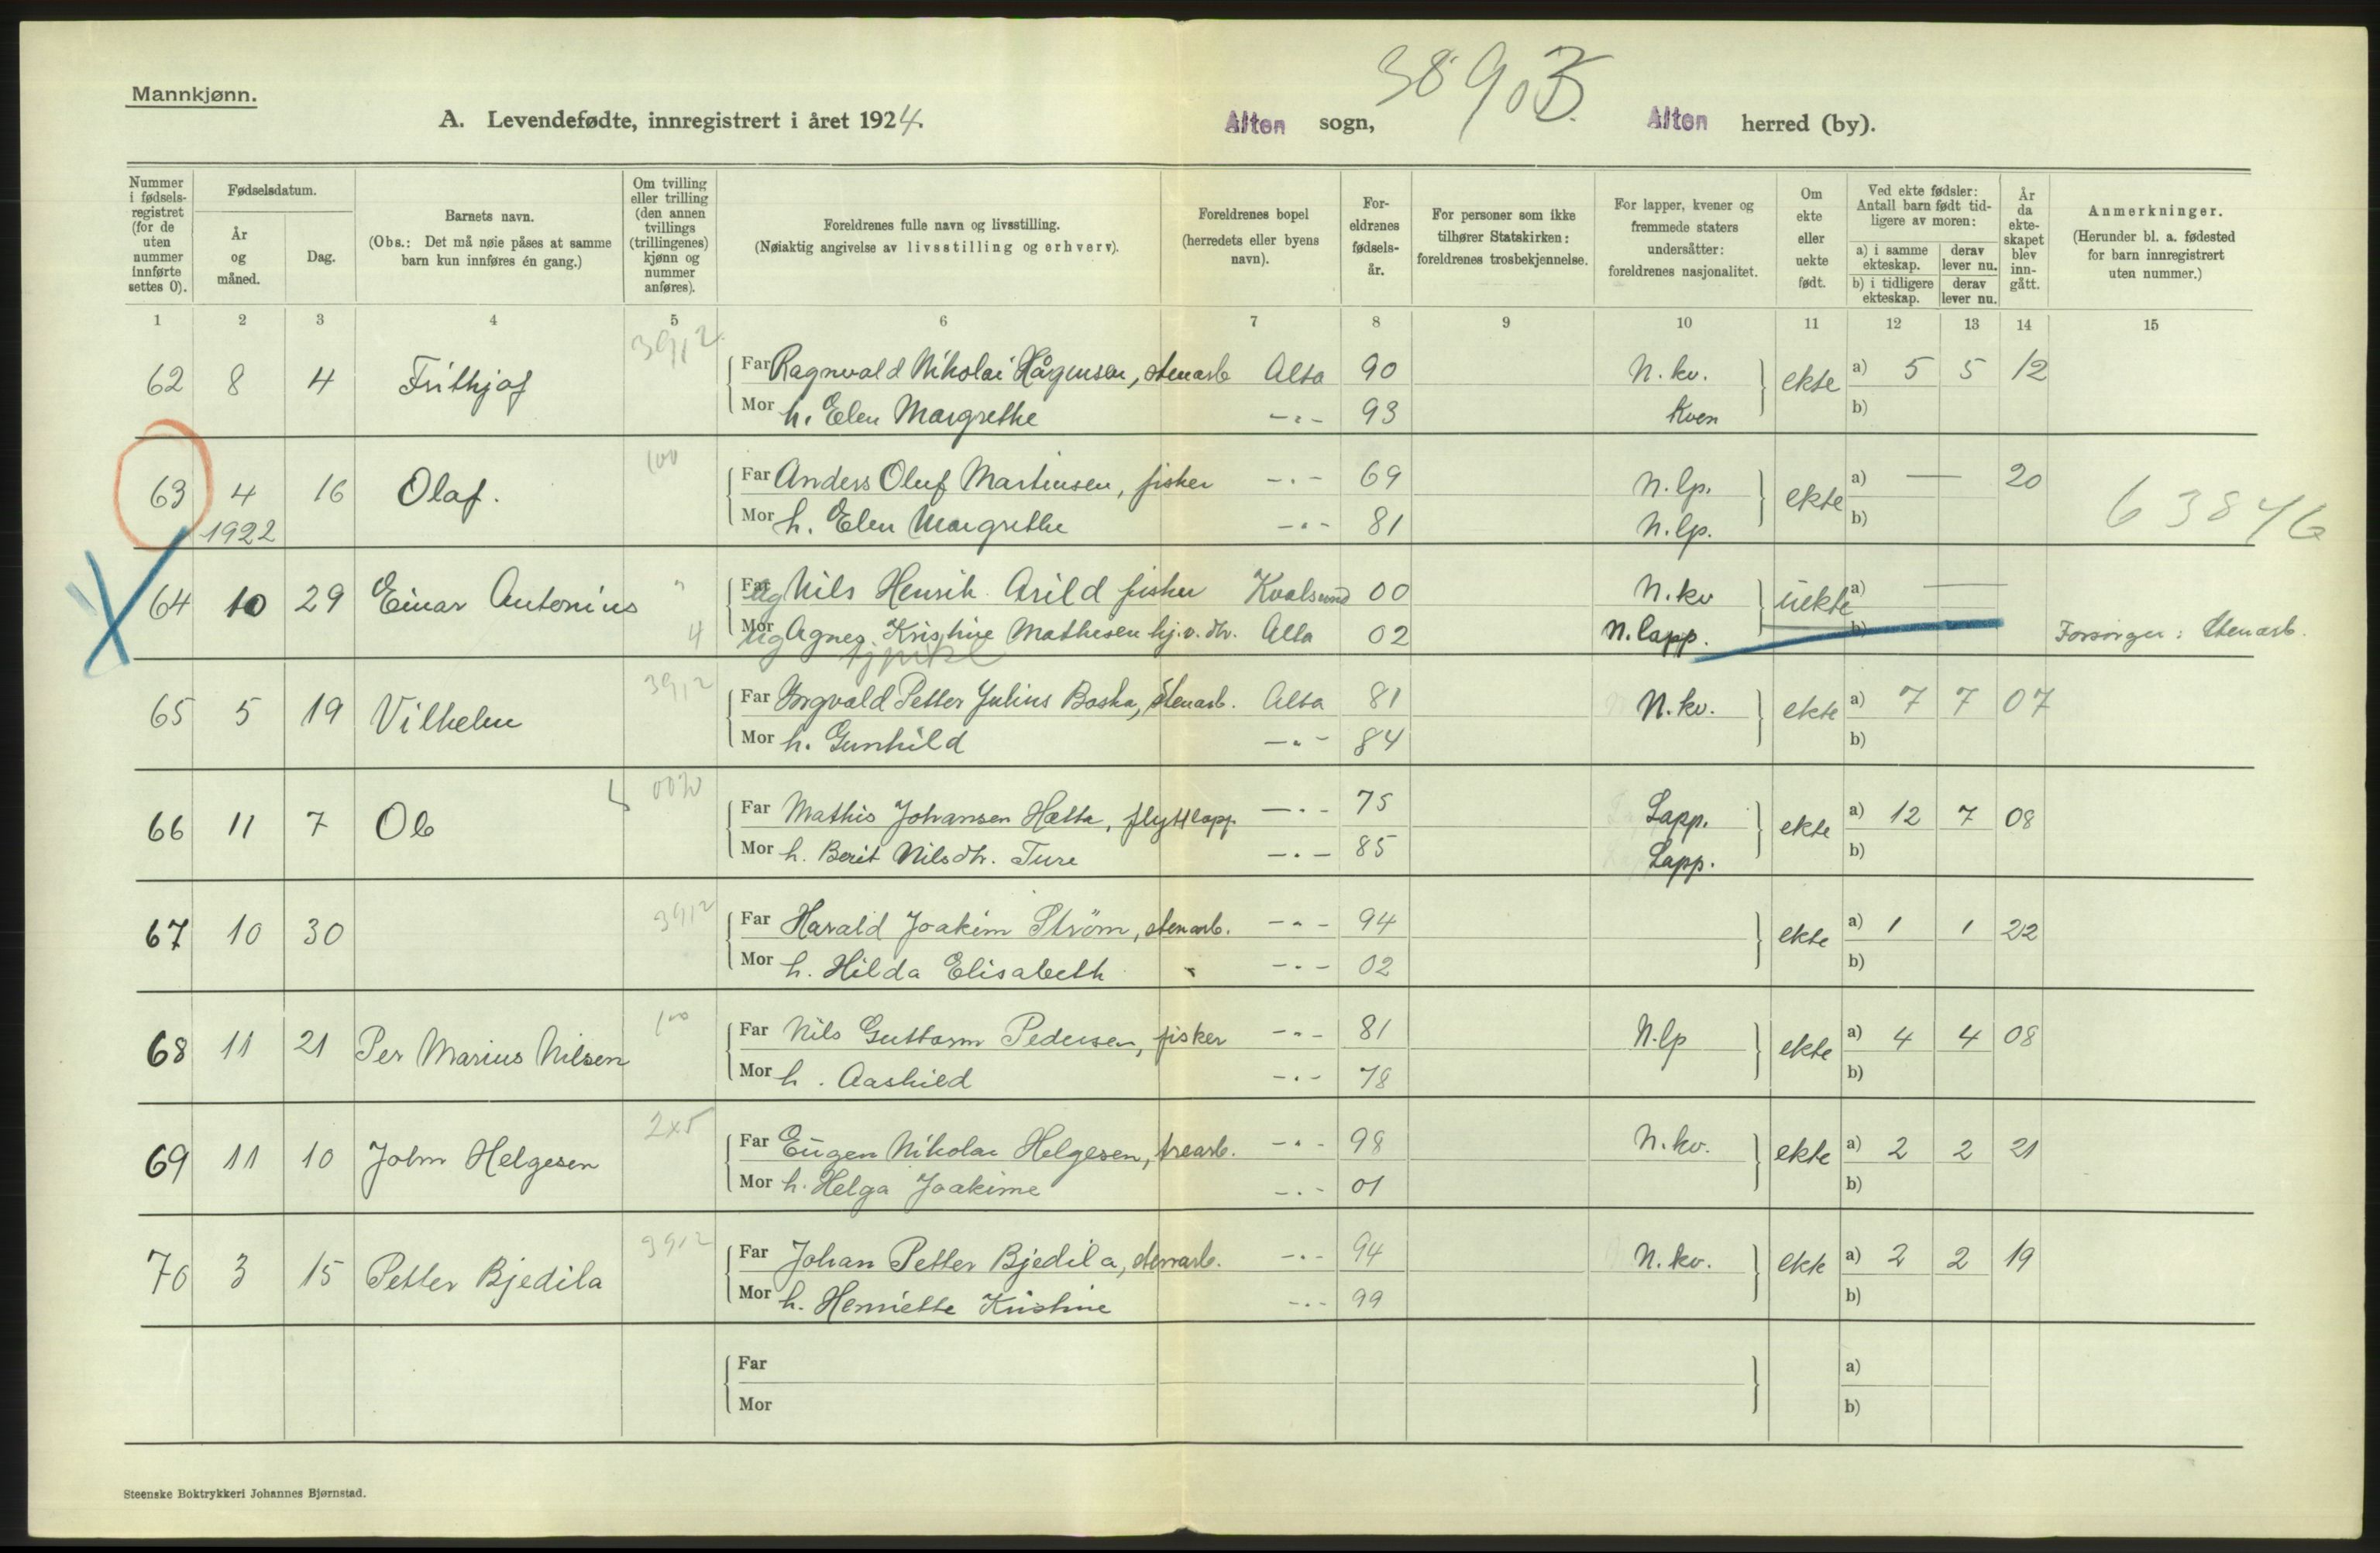 3890B.
Mannkjønn.
A. Levendefødte, innregistrert i året 1924.
Alten sogn, Alten herred (by).
Nummer i fødsels-registret (for de uten nummer innførte settes 0).
Fødselsdatum.
År og måned.
Dag.
Barnets navn.
(Obs.: Det må nøie påses at samme barn kun innføres én gang.)
Om tvilling eller trilling (den annen tvillings (trillingenes) kjønn og nummer anføres).
Foreldrenes fulle navn og livsstilling.
(Nøiaktig angivelse av livsstilling og erhverv).
Foreldrenes bopel (herredets eller byens navn).
For-eldrenes fødsels-år.
For personer som ikke tilhører Statskirken: foreldrenes trosbekjennelse.
For lapper, kvener og fremmede staters undersåtter: foreldrenes nasjonalitet.
Om ekte eller uekte født.
Ved ekte fødsler: Antall barn født tid-ligere av moren:
a) i samme ekteskap. derav lever nu.
b) i tidligere ekteskap. derav lever nu.
År da ekte-skapet blev inn-gått.
Anmerkninger.
(Herunder bl. a. fødested for barn innregistrert uten nummer.)
1 2 3 4 5 6 7 8 9 10 11 12 13 14 15
62 8 4 Frithjof 3912 Far Ragnvald Nikolai Hågensen, stenarb Alta 90 N. kv. ekte a) 5 5 12
Mor h. Elen Margrethe -"- 93 Kven b)
63 4 16 Olaf. 100 Far Anders Oluf Martinsen, fisker -"- 69 N. lp. ekte a) — 20 63846
1922 Mor h. Elen Margrethe -"- 81 N. lp. b)
64 10 29 Einar Antonius Far Ug Nils Henrik Arild fisker Kvalsund 00 N. kv uekte a) —
4 Mor Ug Agnes Kristine Mathisen hj.v. dtr. Alta 02 N. lapp. b) Forsørger: Stenarb.
tjpike
65 5 19 Vilhelm 3912 Far Yngvald Petter Julius Boska, stenarb. Alta 81 N. kv. ekte a) 7 7 07
Mor h. Gunhild -"- 84 b)
66 11 7 Ole 0020 Far Mathis Johansen Hætta, flyttlapp -"- 75 Lapp. ekte a) 12 7 08
Mor h. Berit Nilsdtr. Ture -"- 85 Lapp. b)
67 10 30 3912 Far Harald Joakim Strøm, stenarb. -"- 94 ekte a) 1 1 22
Mor h. Hilda Elisabeth -"- 02 b)
68 11 21 Per Marius Nilsen 100 Far Nils Guttorm Pedersen, fisker -"- 81 N. lp ekte a) 4 4 08
Mor h. Aashild -"- 78 b)
69 11 10 John Helgesen 2x5 Far Eugen Nikolai Helgesen, trearb. -"- 98 N. kv. ekte a) 2 2 21
Mor h. Helga Joakime -"- 01 b)
70 3 15 Petter Bjedila 3912 Far Johan Petter Bjedila, stenarb. -"- 94 N. kv. ekte a) 2 2 19
Mor h. Henriette Kristine -"- 99 b)
Far a)
Mor b)
Steenske Boktrykkeri Johannes Bjørnstad.